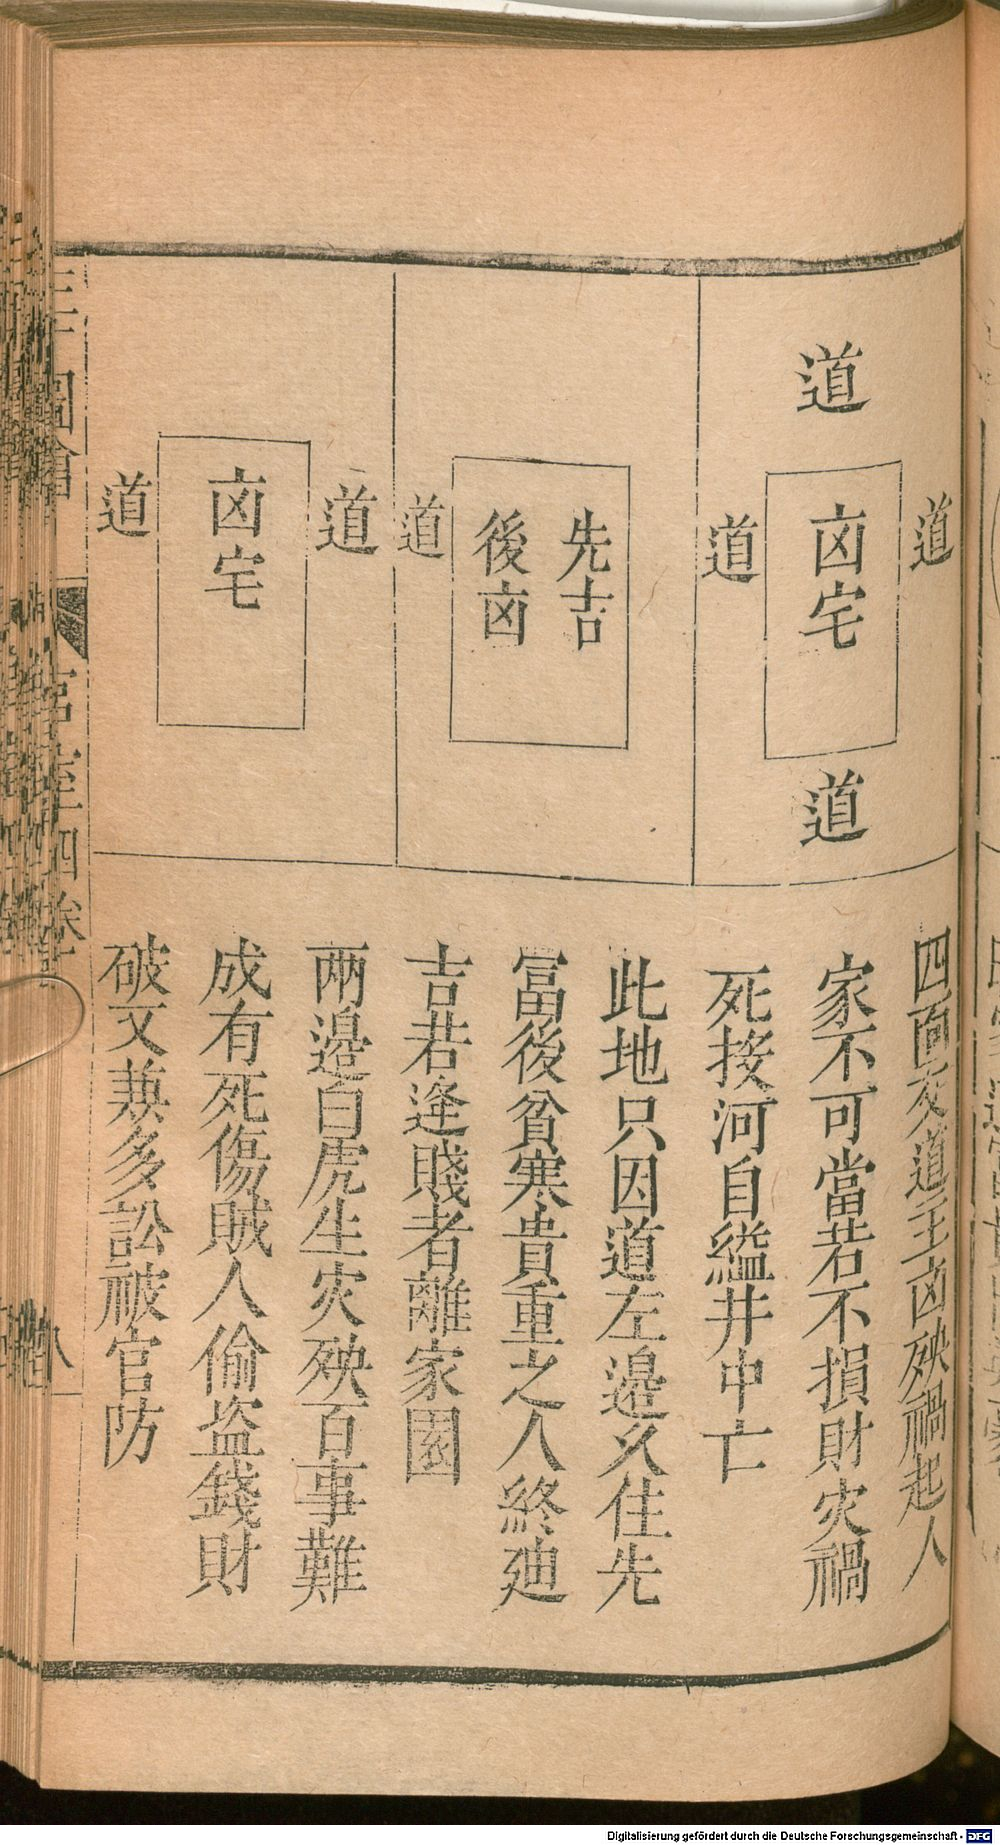 道
道
凶宅
道
道
先吉
後凶
道
道
凶宅
道
四面交道主凶殃禍起人
家不可當若不損財灾禍
死接河自縊井中亡
此地只因道左邉久住先
冨後貧寒貴重之人終廸
吉若逢賤者離家園
两邉白虎生灾殃百事難
成有死傷賊人偷盗錢財
破又兼多訟被官防
三才圖會
宫室四卷
八
Digitalisierung gefördert durch die Deutsche Forschungsgemeinschaft - DFG